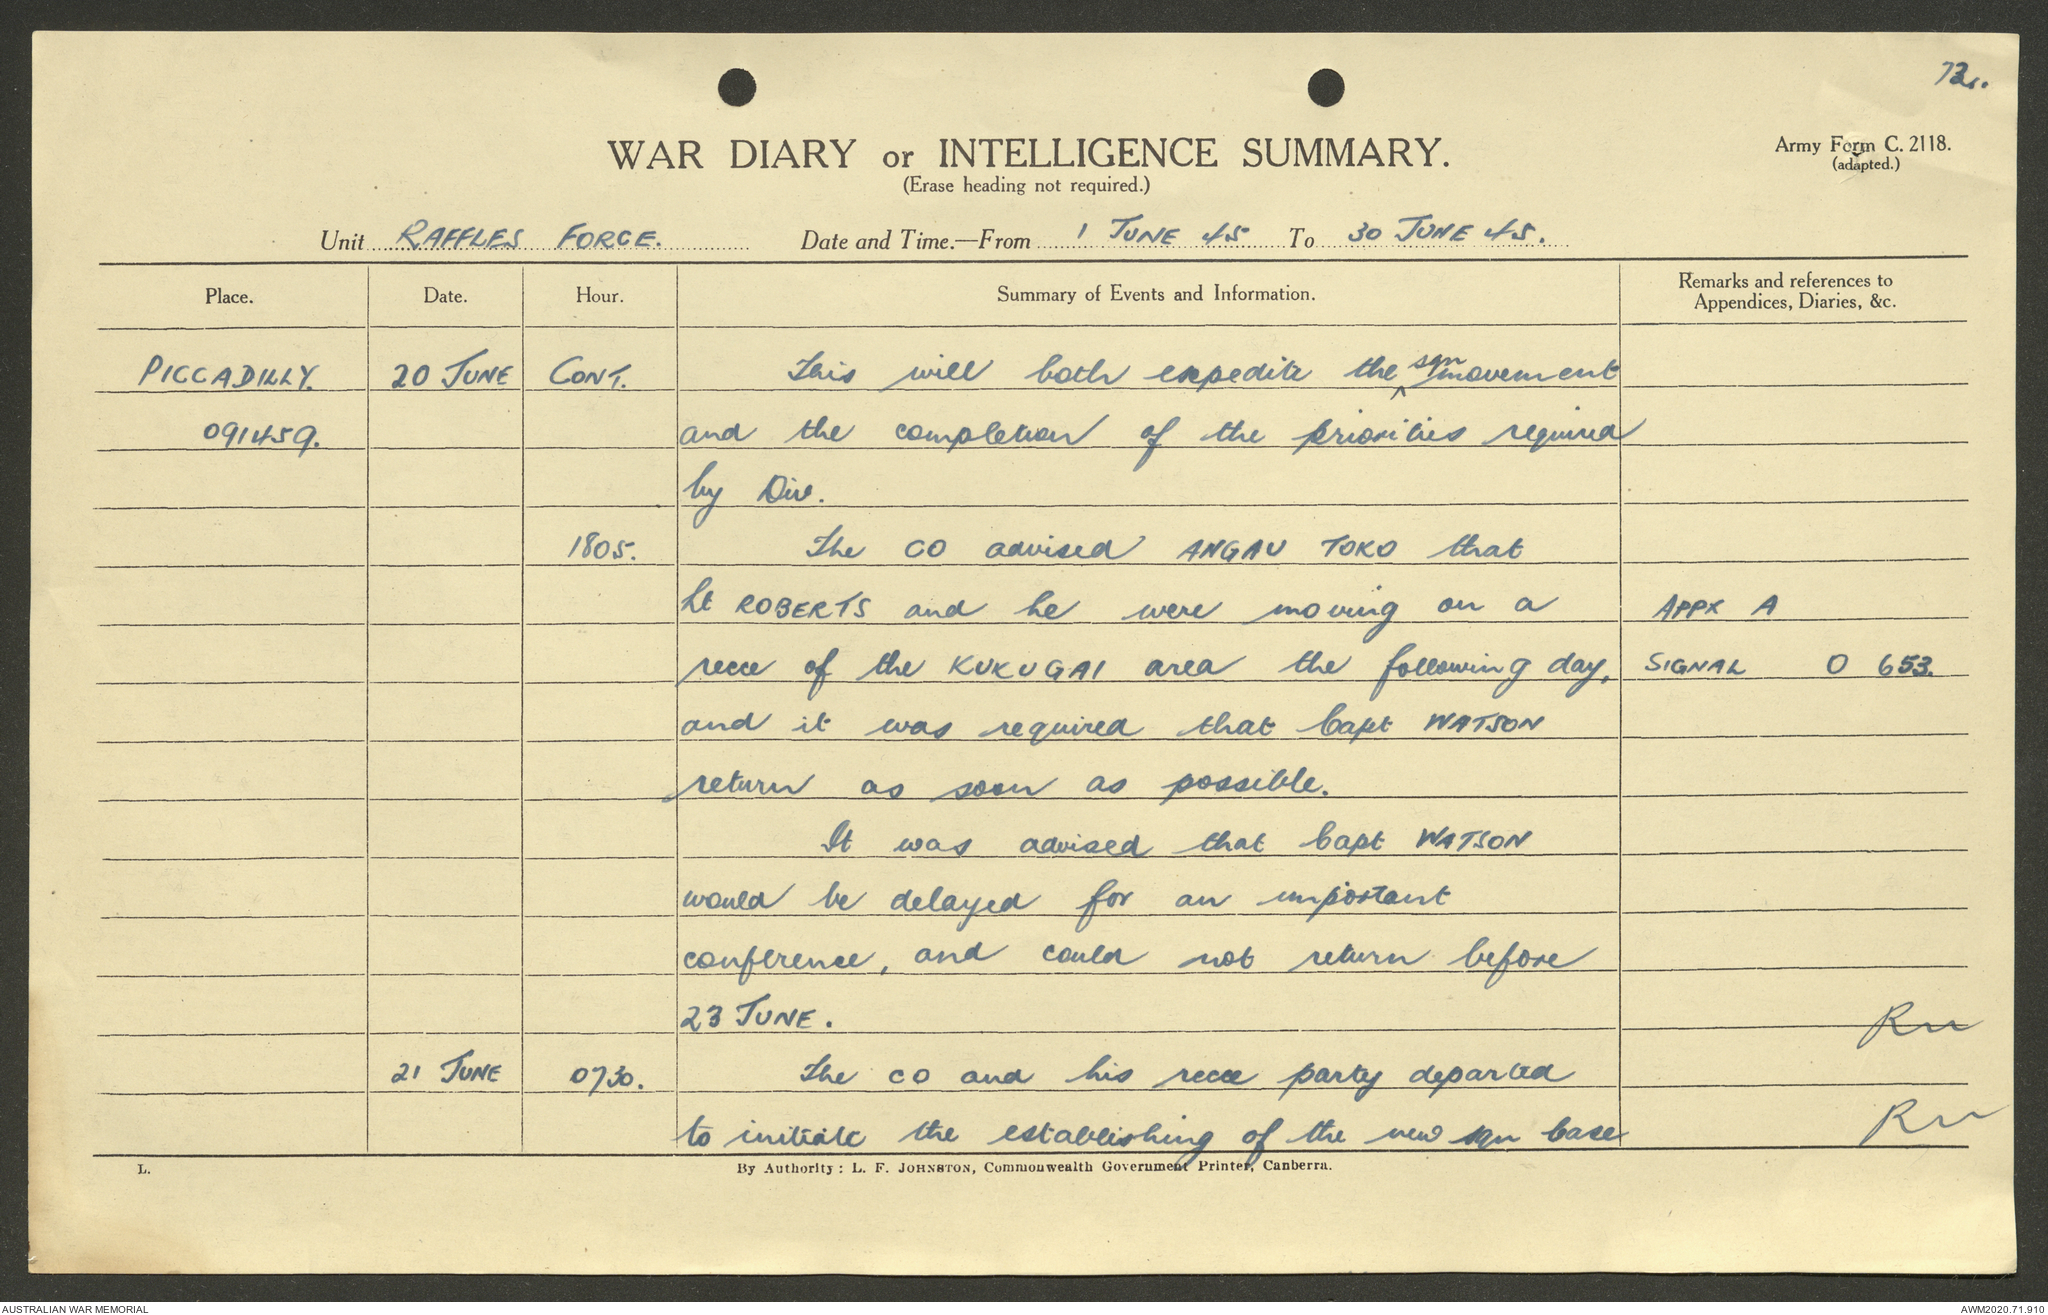 72.
WAR DIARY or INTELLIGENCE SUMMARY.
(Erase heading not required.)
Army Form C. 2118.
(adapted.)
Unit RAFFLES FORCE. Date and Time.—From 1 JUNE 45 To 30 JUNE 45.
Place. Date. Hour. Summary of Events and Information. Remarks and references to Appendices, Diaries, &c.
PICCADILLY. 20 JUNE CONT. This will both expedite the sqn movement
091459. and the completion of the priorities required
by Div.
1805. The CO advised ANGAU TOKO that
Lt ROBERTS and he were moving on a APPX A
recce of the KUKUGAI area the following day, SIGNAL O 653.
and it was required that Capt WATSON
return as soon as possible.
It was advised that Capt WATSON
would be delayed for an important
conference, and could not return before
23 JUNE.
21 JUNE 0730. The CO and his recce party departed
to initiate the establishing of the new sqn base
L. By Authority: L. F. JOHNSTON, Commonwealth Government Printer, Canberra.
AUSTRALIAN WAR MEMORIAL AWM2020.71.910